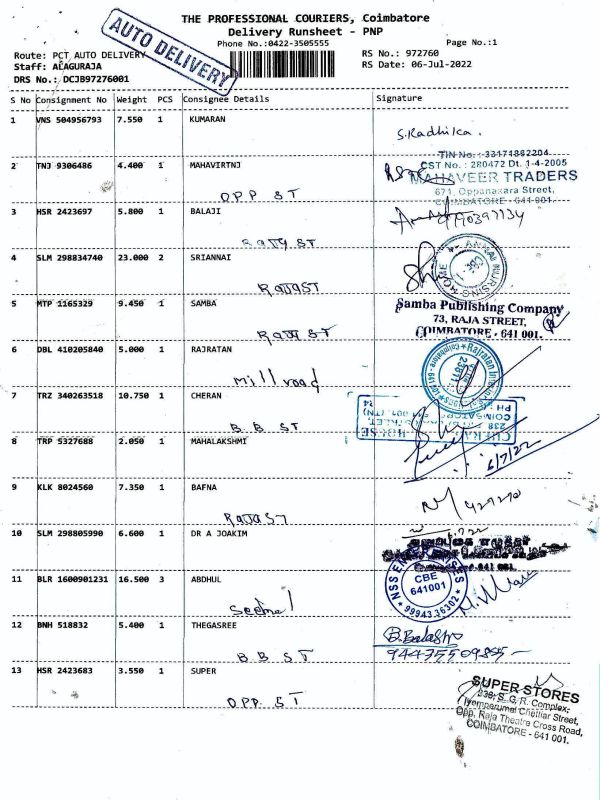 THE PROFESSIONAL COURIERS, Coimbatore
Delivery Runsheet - PNP
Phone No.:0422-3505555
Page No.:1
AUTO DELIVERY
Route: PCT AUTO DELIVERY
RS No.: 972760
Staff: ALAGURAJA
RS Date: 06-Jul-2022
DRS No.: DCJB97276001
S No Consignment No Weight PCS Consignee Details Signature
1 VNS 504956793 7.550 1 KUMARAN
S.Radhika.
TIN No.: 33171882204
CST No.: 280472 Dt. 1-4-2005
2 TNJ 9306486 4.400 1 MAHAVIRTNJ
MAHAVEER TRADERS
671, Oppanakara Street,
COIMBATORE - 641 001.
OPP ST
3 HSR 2423697 5.800 1 BALAJI
RAJA ST
4 SLM 298834740 23.000 2 SRIANNAI
ANNAI NURSING HOME
RAJA ST
5 MTP 1165329 9.450 1 SAMBA
Samba Publishing Company
73, RAJA STREET,
COIMBATORE - 641 001.
RAJA ST
6 DBL 410205840 5.000 1 RAJRATAN
Mill road
7 TRZ 340263518 10.750 1 CHERAN
B B ST
8 TRP 5327688 2.050 1 MAHALAKSHMI
6/7/22
9 KLK 8024560 7.350 1 BAFNA
RAJA ST
10 SLM 298805990 6.600 1 DR A JOAKIM
11 BLR 1600901231 16.500 3 ABDHUL
NSS ENTERPRISES
CBE
641001
99943 36302
12 BNH 518832 5.400 1 THEGASREE
B B ST
13 HSR 2423683 3.550 1 SUPER
OPP. ST
SUPER STORES
238, S. G. R. Complex,
Iyemperumal Chettiar Street,
Opp. Raja Theatre Cross Road,
COIMBATORE - 641 001.